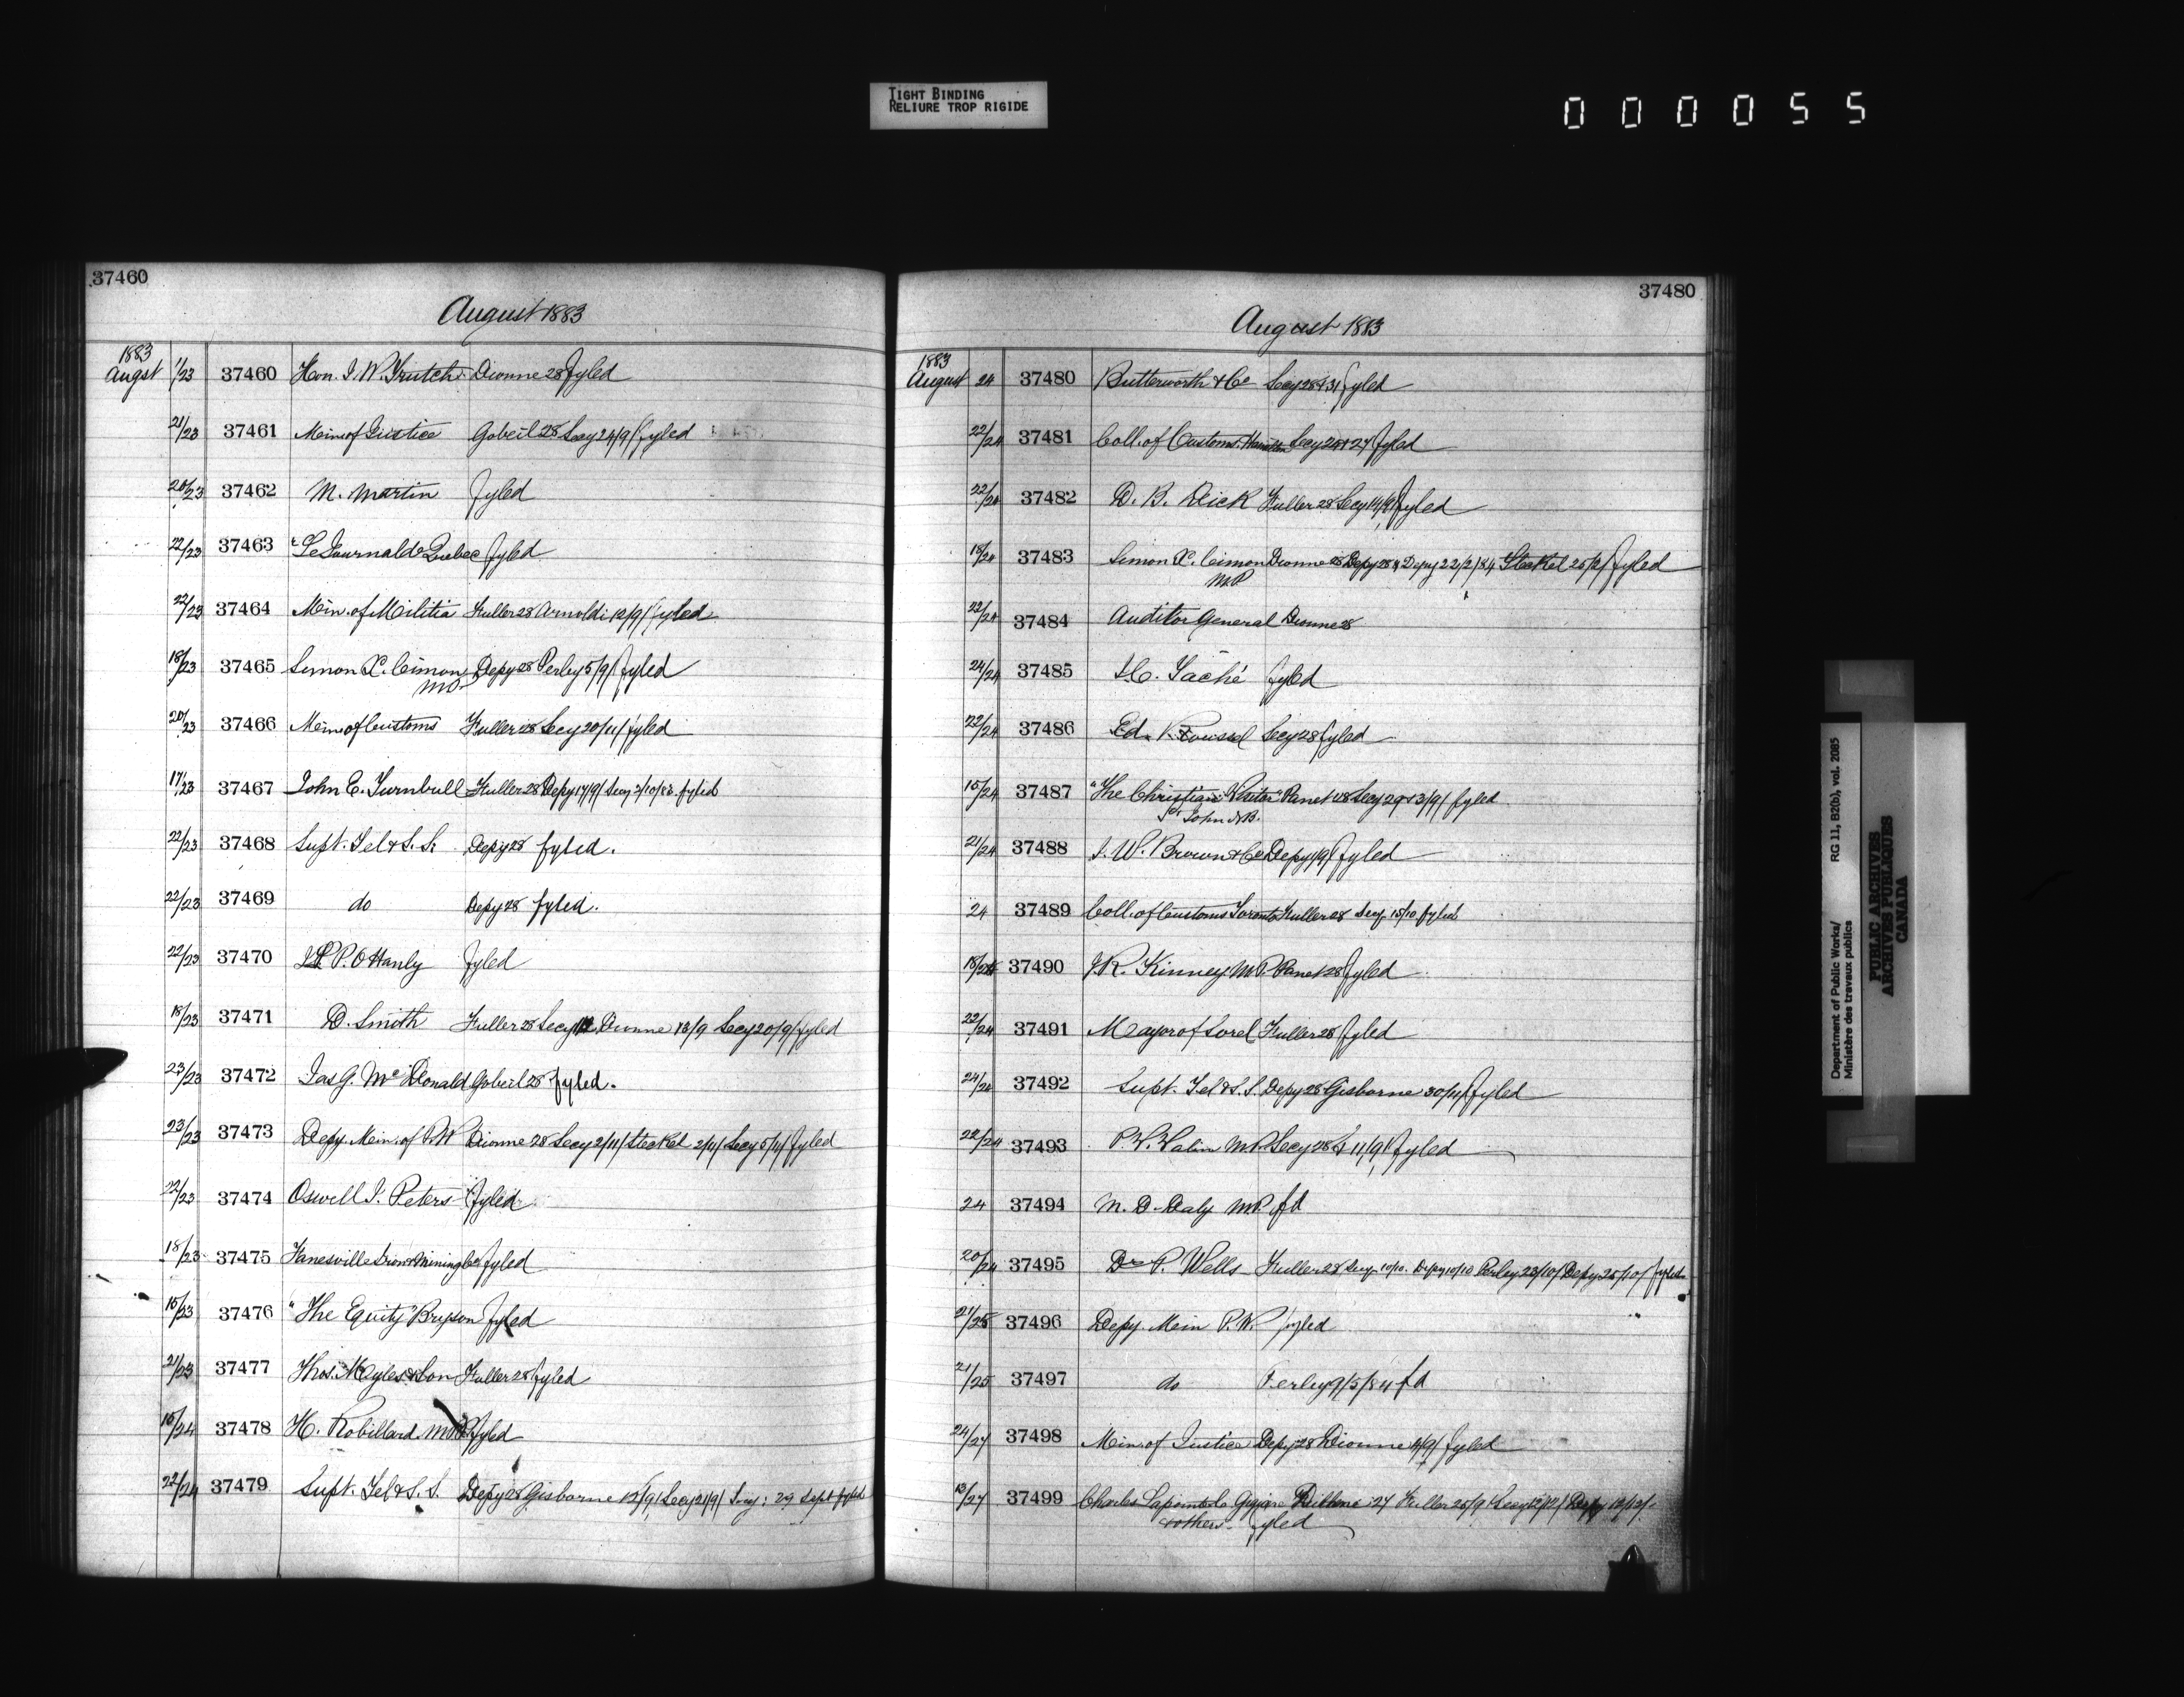 TIGHT BINDING
RELIURE TROP RIGIDE
000055
37460
August 1883
1883
Augst 11/23 37460 Hon. J. W. Trutch Dionne 28 fyled
21/23 37461 Min of Justice Gobeil 28 Secy 24/9/ fyled
20/23 37462 M. Martin fyled
22/23 37463 "Le Journal de Quebec fyled
22/23 37464 Min. of Militia Fuller 28 Arnoldi 12/9/ fyled
18/23 37465 Simon X. Cimon Depy 28 Perley 5/9/ fyled
MP
20/23 37466 Min of Customs Fuller 28 Secy 20/11/ fyled
17/23 37467 John E. Turnbull Fuller 28 Depy 17/9/ Secy 2/10/83 fyled
22/23 37468 Supt. Tel & S. S. Depy 28 fyled.
22/23 37469 do Depy 28 fyled.
22/23 37470 J L P. O'Hanly fyled
18/23 37471 D. Smith Fuller 28 Secy Dionne 13/9 Secy 20/9/ fyled
23/23 37472 Jas G. McDonald Gobeil 28 fyled.
23/23 37473 Depy. Min. of P.W Dionne 28 Secy 2/11/ Steckel 2/11/ Secy 5/11/ fyled
22/23 37474 Oswell J. Peters fyled
18/23 37475 Janesville Iron & Mining Co fyled
15/23 37476 "The Equity" Bryson fyled
21/23 37477 Thos. Myles & Son Fuller 28 fyled
15/24 37478 H. Robillard fyled
22/24 37479 Supt. Tel & S. S. Depy 28 Gisborne 12/9/ Secy 21/9/ Secy: 29 Sept fyled
37480
August 1883
1883
August 24 37480 Butterworth & Co Secy 28 & 31 fyled
22/24 37481 Coll. of Customs. Hamilton Secy 28 & 27 fyled
22/24 37482 D. B. Dick Fuller 28 Secy 14/9/ fyled
18/24 37483 Simon X. Cimon Dionne 28 Depy 28 & Depy 22/2/84 Steckel 25/2/ fyled
MP
22/24 37484 Auditor General Dionne 28
24/24 37485 Taché fyled
22/24 37486 Ed. Roussel Secy 28 fyled
15/24 37487 "The Christian Visitor" Panet 28 Secy 29 & 3/9/ fyled
St John N.B.
21/24 37488 J. W. Brown & Co Depy 1/9/ fyled
24 37489 Coll. of Customs Toronto Fuller 28 Secy 15/10 fyled
18/24 37490 J. R. Kinney M.P. Panet 28 fyled
22/24 37491 Mayor of Sorel Fuller 28 fyled
24/24 37492 Supt. Tel & S. S. Depy 28 Gisborne 30/11/ fyled
22/24 37493 P. V. Valin M.P. Secy 28 & 11/9/ fyled
24 37494 M. D. Daly M.P. fd
20/24 37495 Dr P. Wells Fuller 28 Secy 10/10. Depy 10/10 Perley 23/10/ Depy 25/10/ fyled
21/25 37496 Depy. Min P.W. fyled
21/25 37497 do Perley 9/5/84 fd
24/27 37498 Min. of Justice Depy 28 Dionne 4/9/ fyled
13/27 37499 Charles Lapointe Dionne 27 Fuller 25/9/ Secy 12/12/ Depy 12/12/
& others fyled
Department of Public Works/ RG 11, B2(b), vol. 2085
Ministère des travaux publics
PUBLIC ARCHIVES
ARCHIVES PUBLIQUES
CANADA